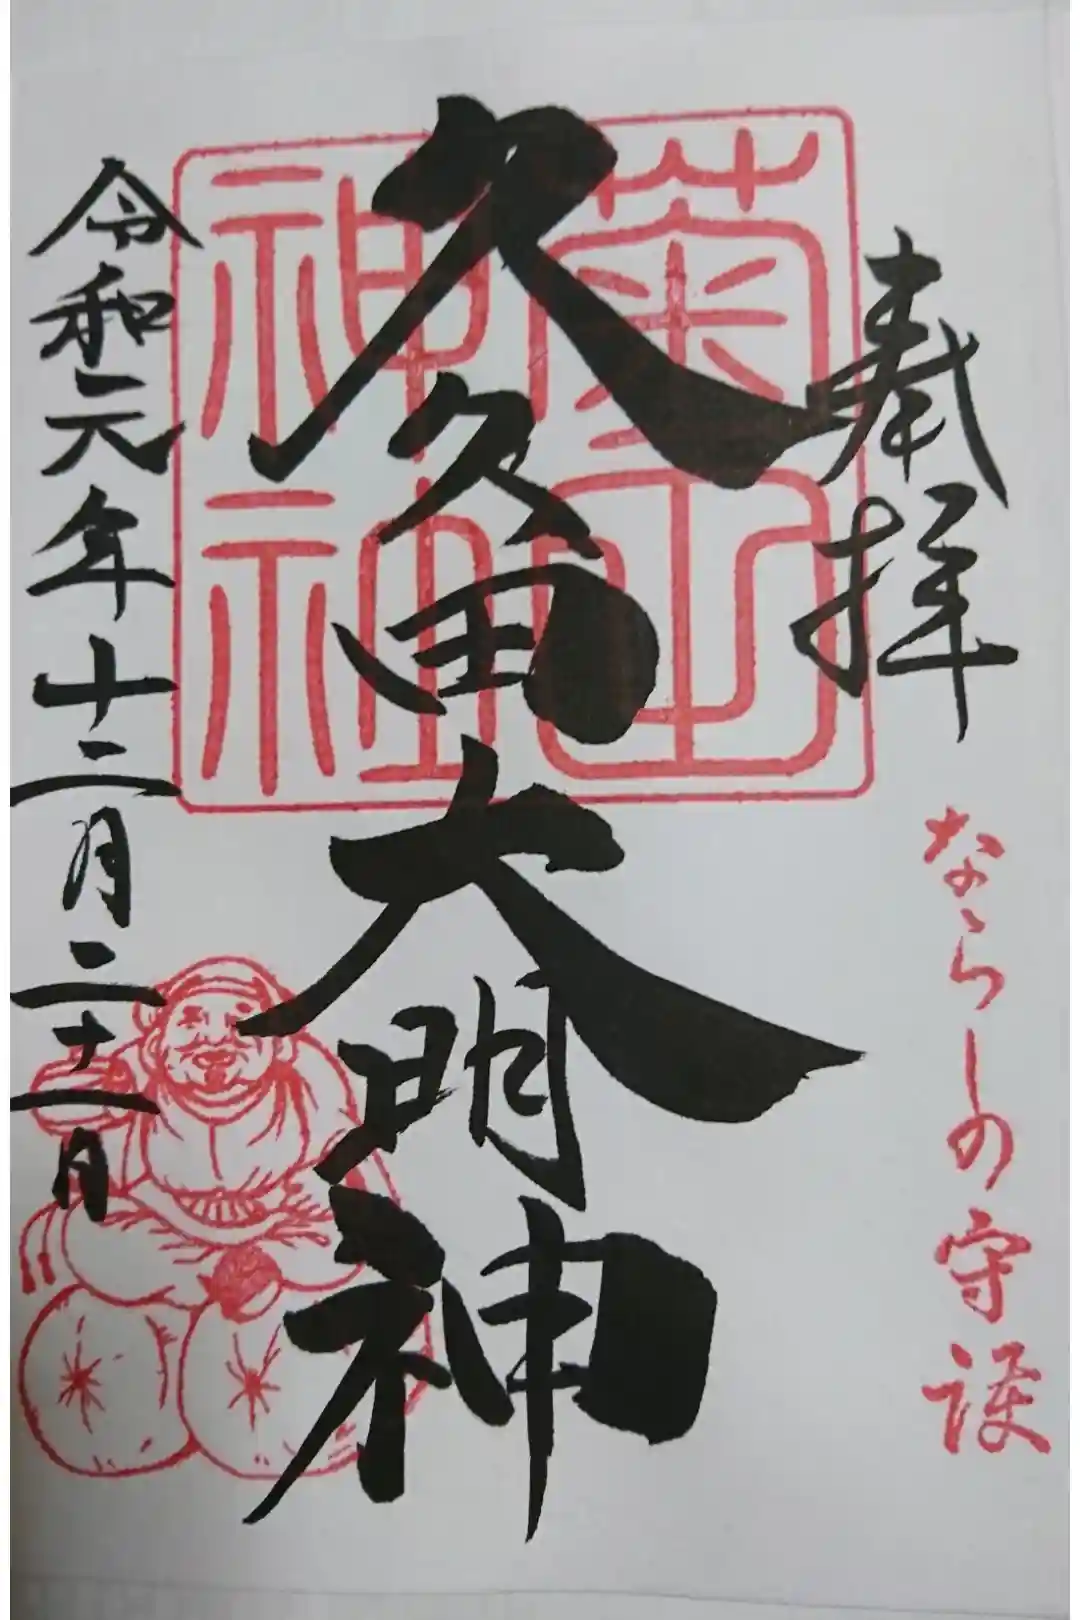 奉拝
ならしの守護
菊田
神社
久久田大明神
令和元年十二月二十一日